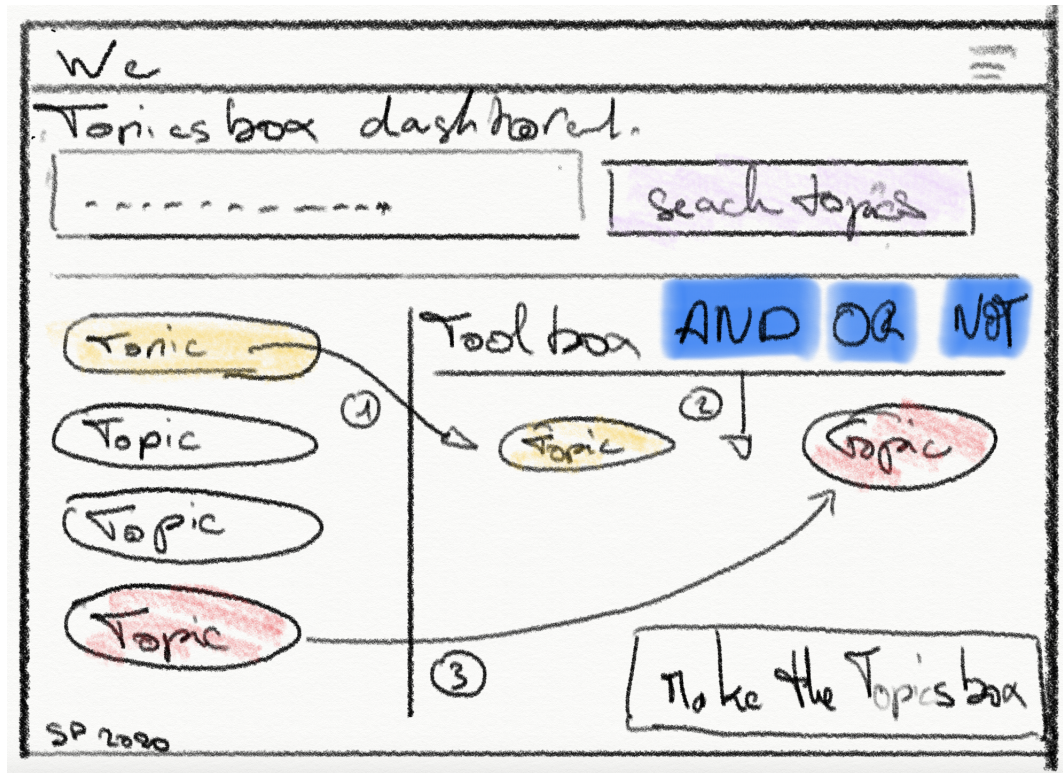 We
Topics box dashboard.
seach topics
Topic
Topic
Topic
Topic
Toolbox AND OR NOT
1
2
Topic
Topic
3
Make the Topicsbox
SP 2020